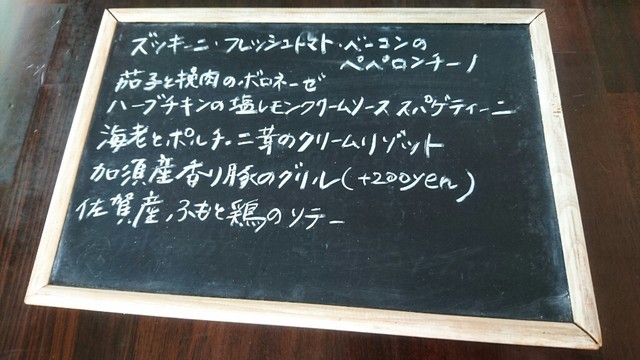 ズッキーニ・フレッシュトマト・ベーコンの
ペペロンチーノ
茄子と挽肉のボロネーゼ
ハーブチキンの塩レモンクリームソース スパゲティーニ
海老とポルチーニ茸のクリームリゾット
加須産香り豚のグリル(+200yen)
佐賀産ふもと鶏のソテー